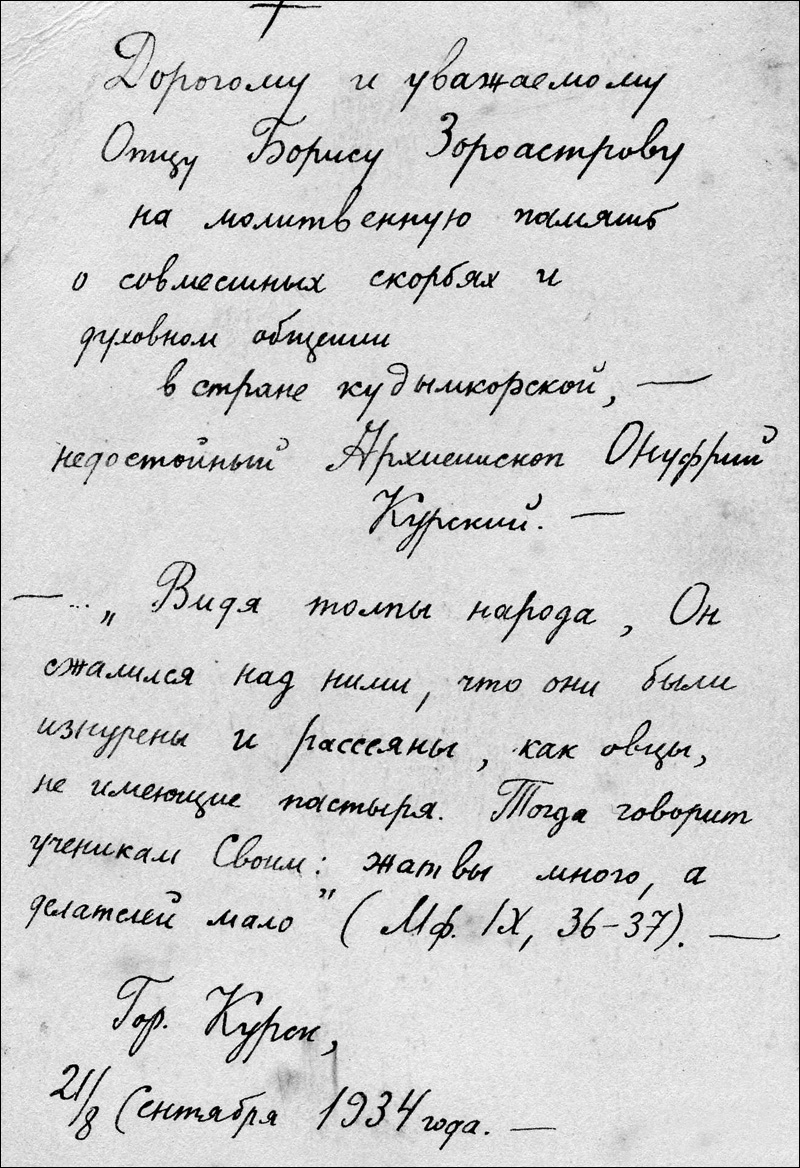 Дорогому и уважаемому
Отцу Борису Зороастрову
на молитвенную память
о совместных скорбях и
духовном общении
в стране кудымкорской, —
недостойный Архиепископ Онуфрий
Курский. —
— ... „Видя толпы народа, Он
сжалился над ними, что они были
изнурены и рассеяны, как овцы,
не имеющие пастыря. Тогда говорит
ученикам Своим: жатвы много, а
делателей мало” (Мф. IX, 36-37). —
Гор. Курск,
21/8 Сентября 1934 года. —